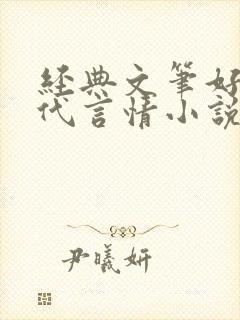 經典文筆好
代言情小說
尹曦妍